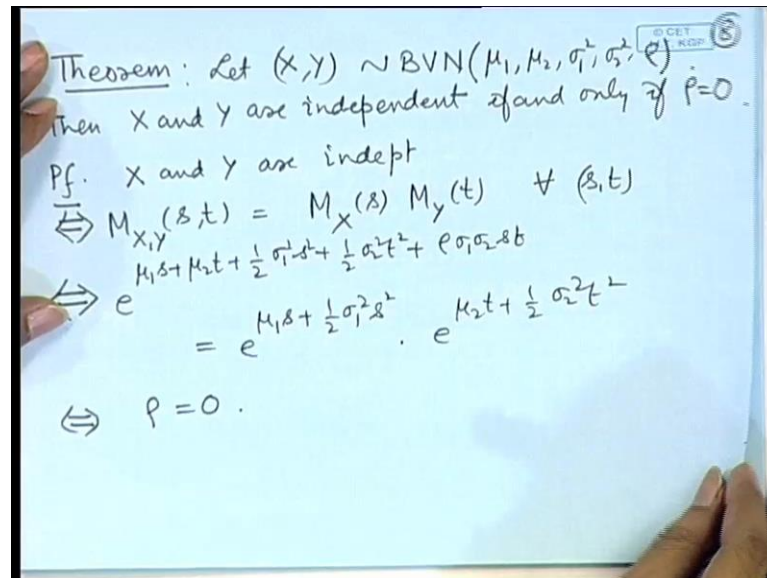 © CET
I.I.T. KGP
8
Theorem : Let (X,Y) ~ BVN(μ₁, μ₂, σ₁², σ₂², ρ).
Then X and Y are independent if and only if ρ=0.
Pf. X and Y are indept
⇔ M_{X,Y}(s,t) = M_X(s) M_Y(t) ∀ (s,t)
⇔ e^{μ₁s + μ₂t + ½ σ₁²s² + ½ σ₂²t² + ρσ₁σ₂st}
= e^{μ₁s + ½ σ₁²s²} . e^{μ₂t + ½ σ₂²t²}
⇔ ρ = 0 .